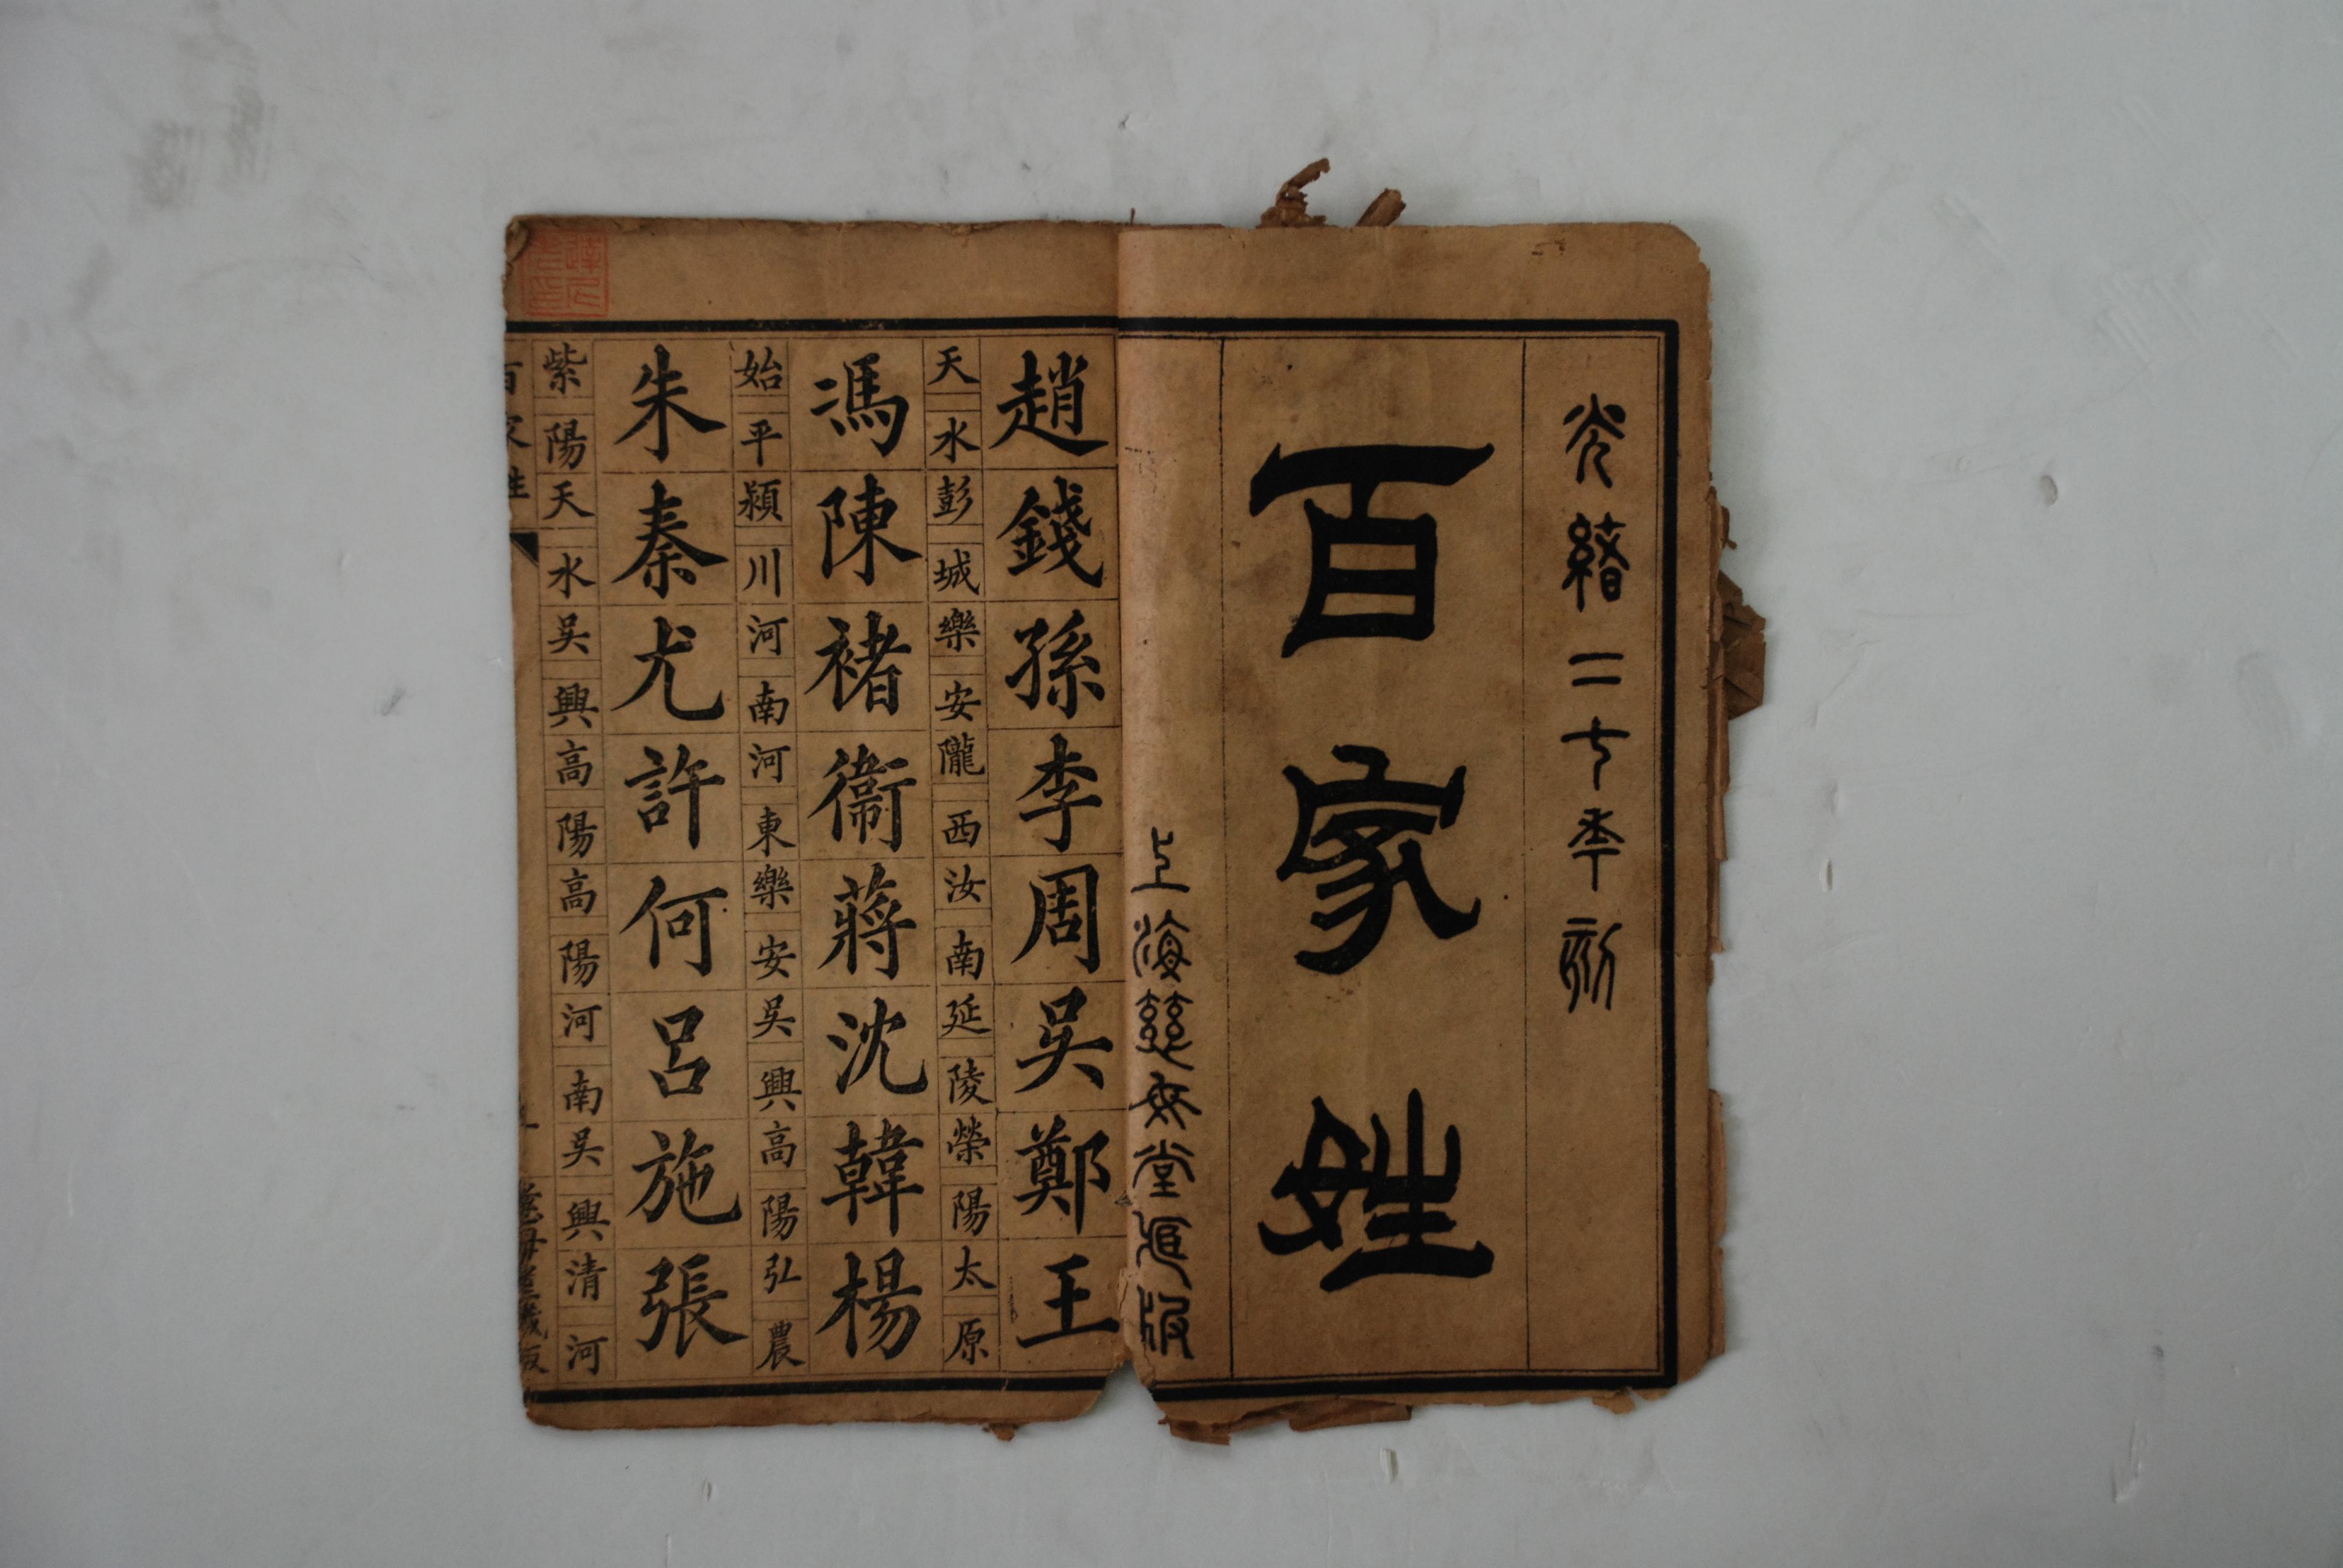 光緒二七年
百家姓
上海慈母堂版
趙錢孫李周吳鄭王
天水彭城樂安隴西汝南延陵榮陽太原
馮陳褚衞蔣沈韓楊
始平潁川河南河東樂安吳興高陽弘農
朱秦尤許何呂施張
紫陽天水吳興高陽高陽河南吳興清河
百家姓